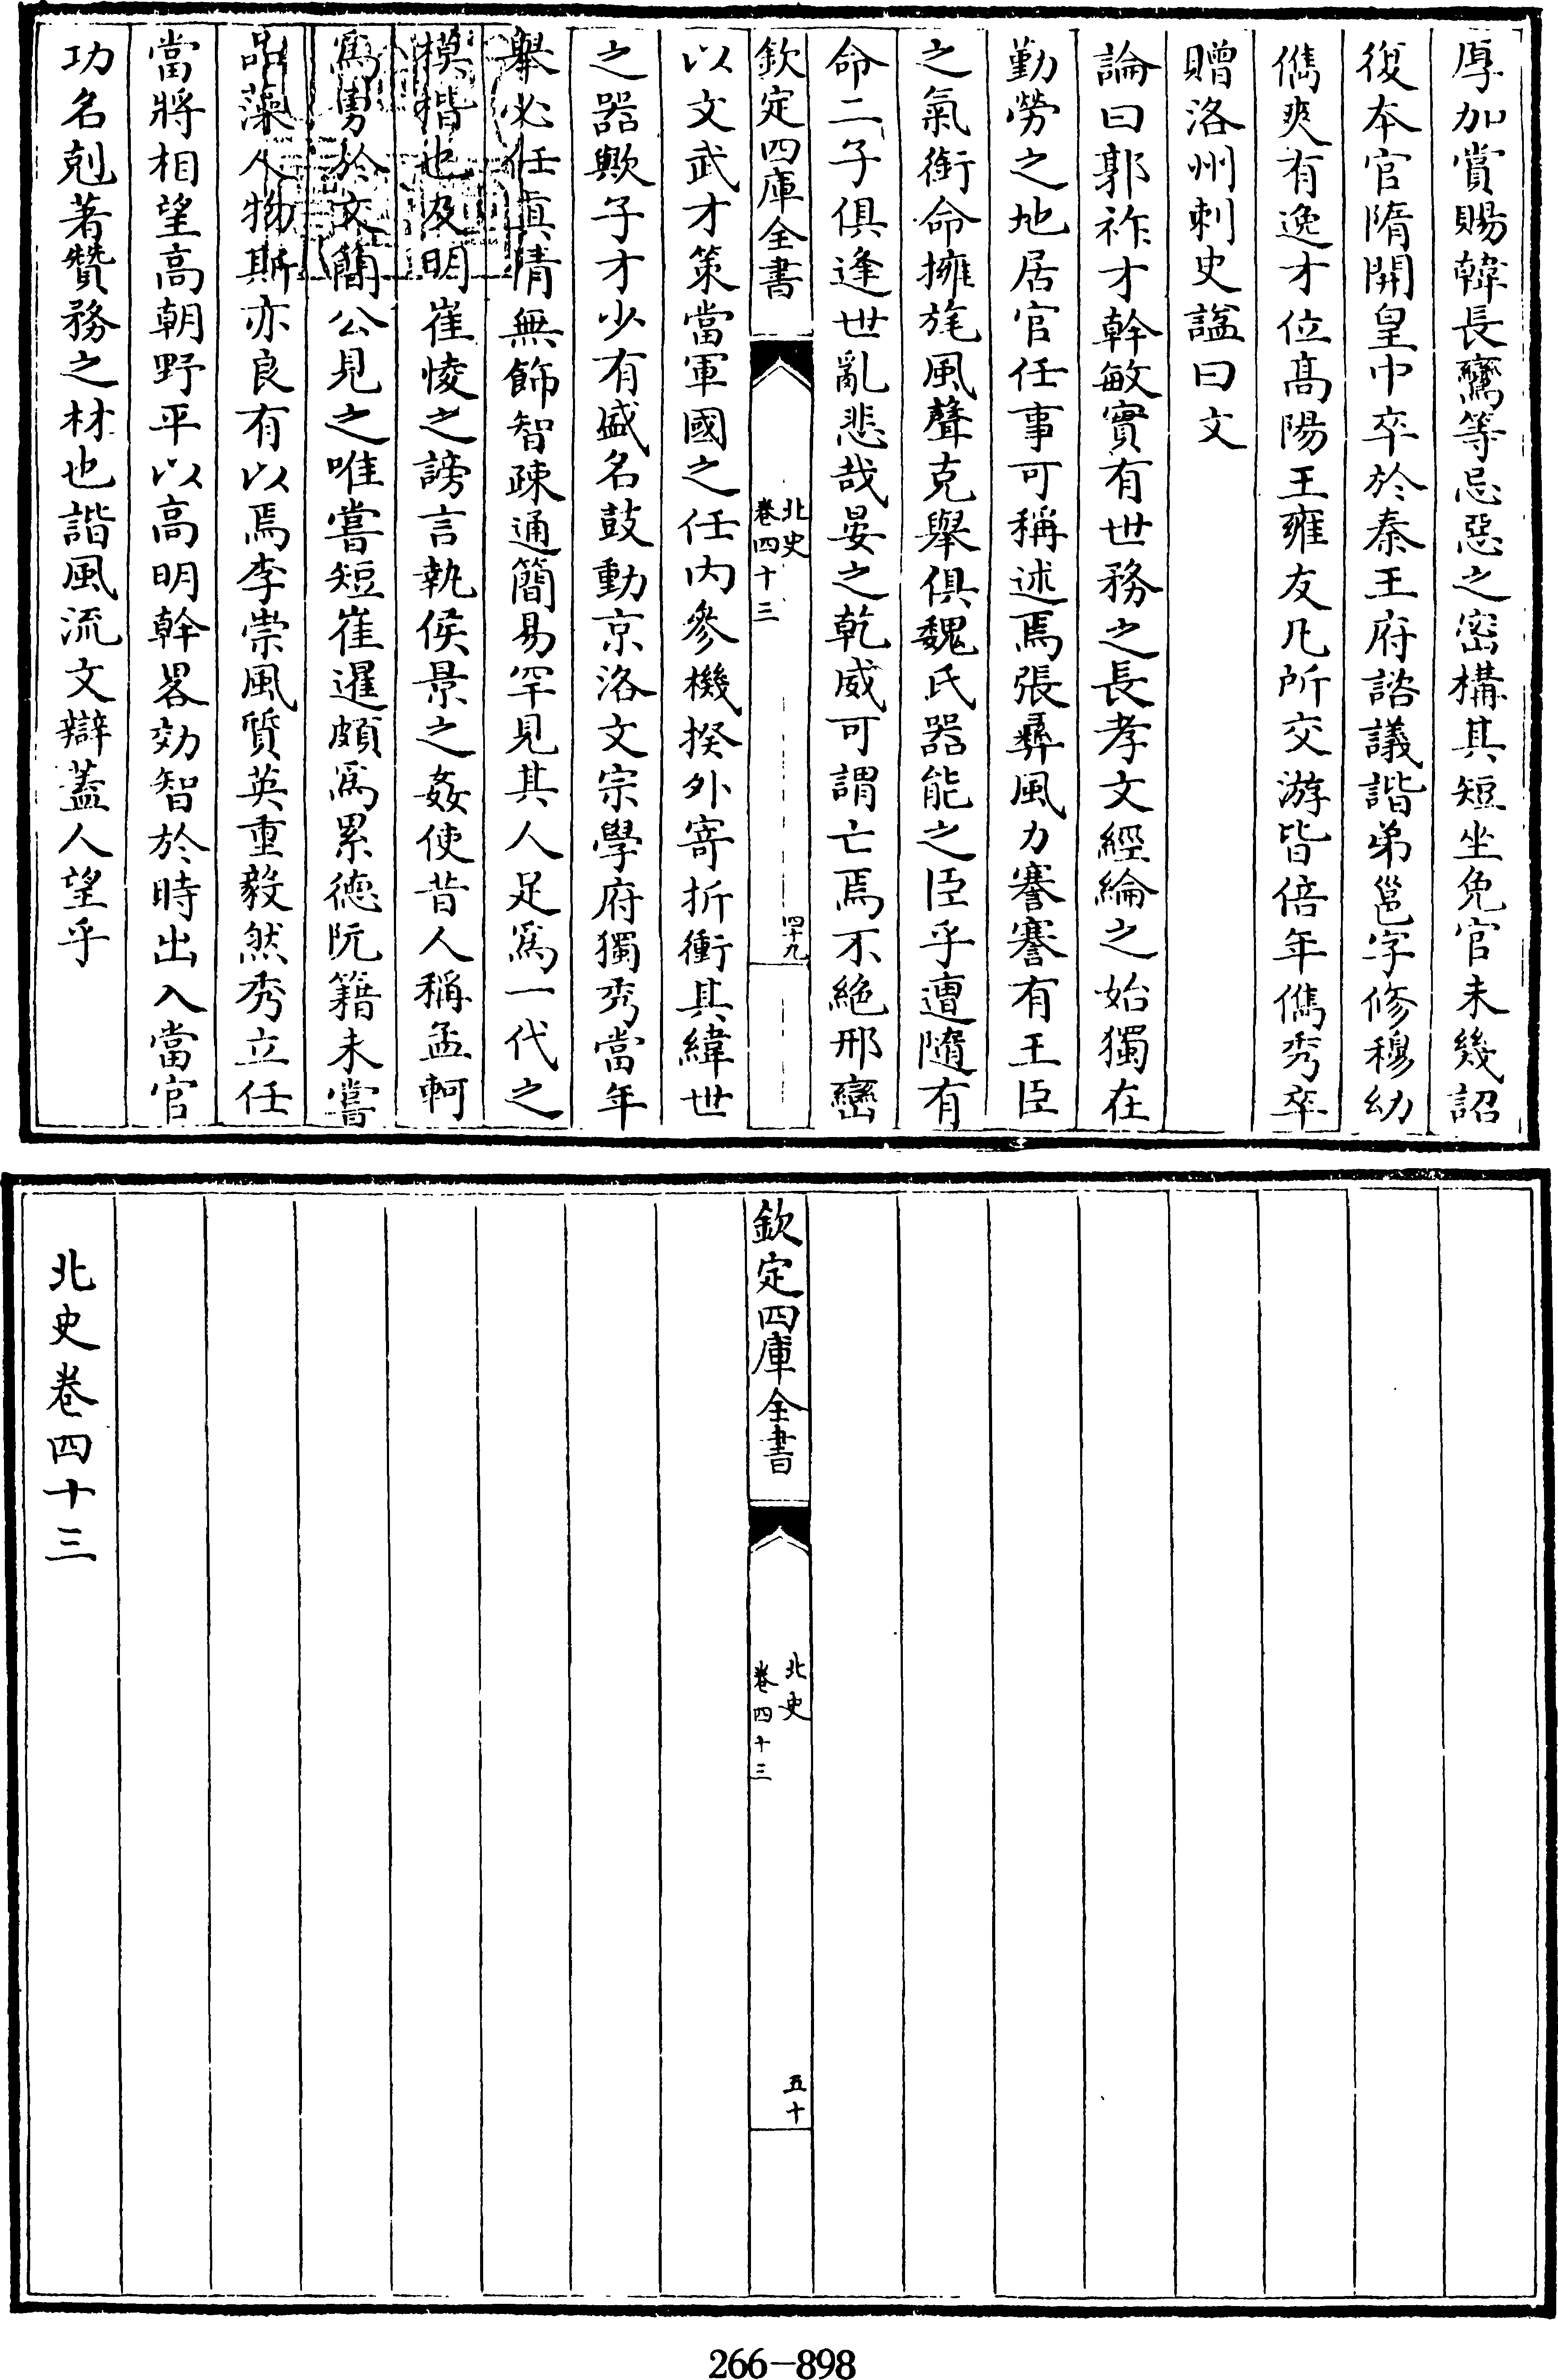 厚加賞賜韓長鸞等忌惡之密構其短坐免官未幾詔
復本官隋開皇中卒於秦王府諮議諧弟邕字修穆幼
儁爽有逸才位髙陽王雍友凡所交游皆倍年儁秀卒
贈洛州刺史諡曰文
論曰郭祚才幹敏實有世務之長孝文經綸之始獨在
勤勞之地居官任事可稱述焉張彝風力謇謇有王臣
之氣銜命擁旄風聲克舉俱魏氏器能之臣乎遭隨有
命二子俱逢世亂悲哉晏之乾威可謂亡焉不絶邢巒
欽定四庫全書
北史
卷四十三
四十九
以文武才策當軍國之任内參機揆外寄折衝其緯世
之器歟子才少有盛名鼓動京洛文宗學府獨秀當年
舉必任真情無飾智疎通簡易罕見其人足爲一代之
模楷也及明崔㥄之謗言執侯景之姦使昔人稱孟軻
爲勇於文簡公見之唯嘗短崔暹頗爲累德阮籍未嘗
品藻人物斯亦良有以焉李崇風質英重毅然秀立任
當將相望高朝野平以高明幹畧効智於時出入當官
功名剋著贊務之材也諧風流文辯蓋人望乎
欽定四庫全書
北史
卷四十三
五十
北史卷四十三
266-898